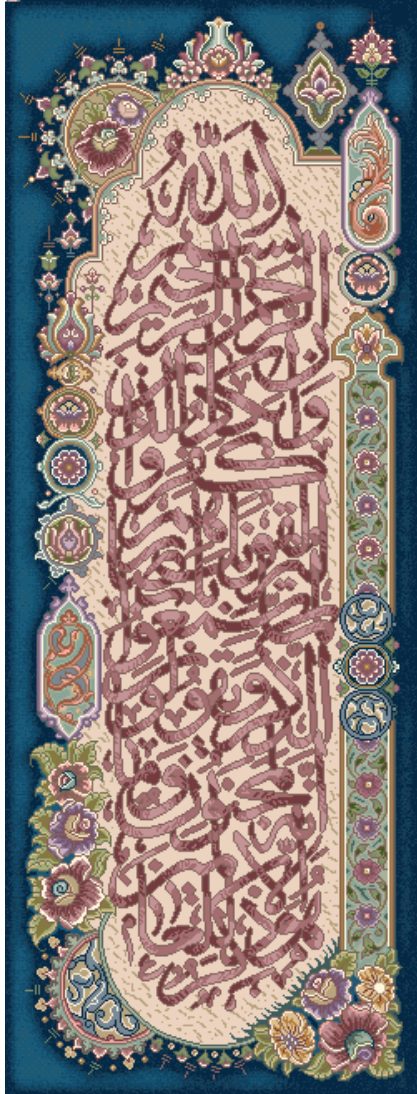 بسم الله
الرحمن الرحيم
وان يكاد الذين
كفروا
ليزلقونك بابصارهم
لما سمعوا
الذكر ويقولون
انه لمجنون
وما هو
الا ذكر للعالمين